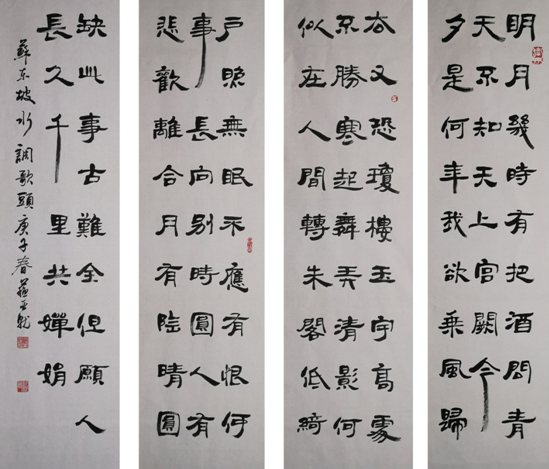 明月幾時有把酒問青
天不知天上宮闕今
夕是何年我欲乘風歸
去又恐瓊樓玉宇高處
不勝寒起舞弄清影何
似在人間轉朱閣低綺
戶照無眠不應有恨何
事長向別時圓人有
悲歡離合月有陰晴圓
缺此事古難全但願人
長久千里共嬋娟
蘇東坡水調歌頭庚子春